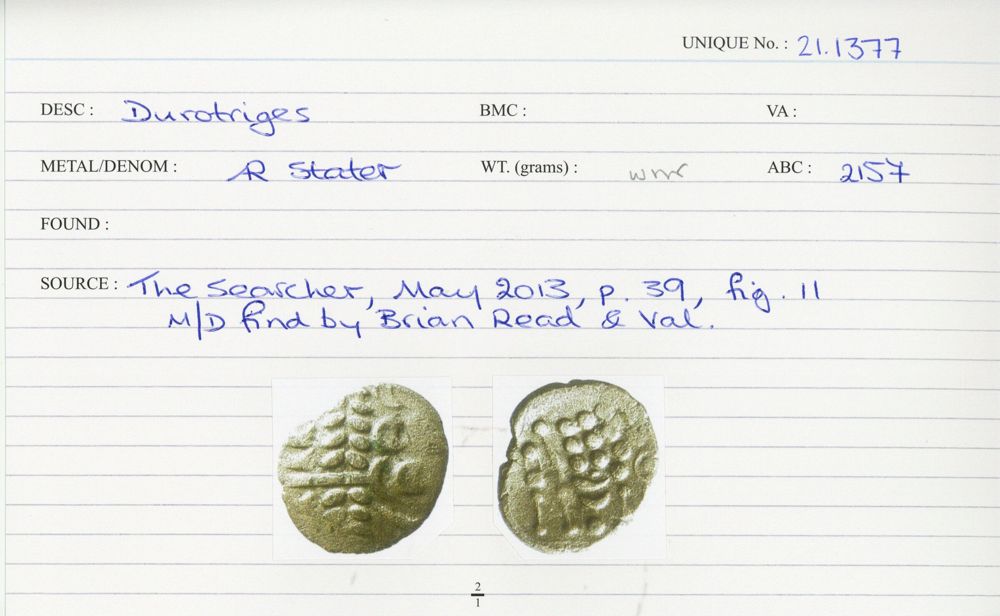 UNIQUE No. : 21.1377
DESC : Durotriges BMC : VA :
METAL/DENOM : AR Stater WT. (grams) : wnr ABC : 2157
FOUND :
SOURCE : The Searcher, May 2013, p. 39, fig. 11
M/D find by Brian Read & Val.
2
1